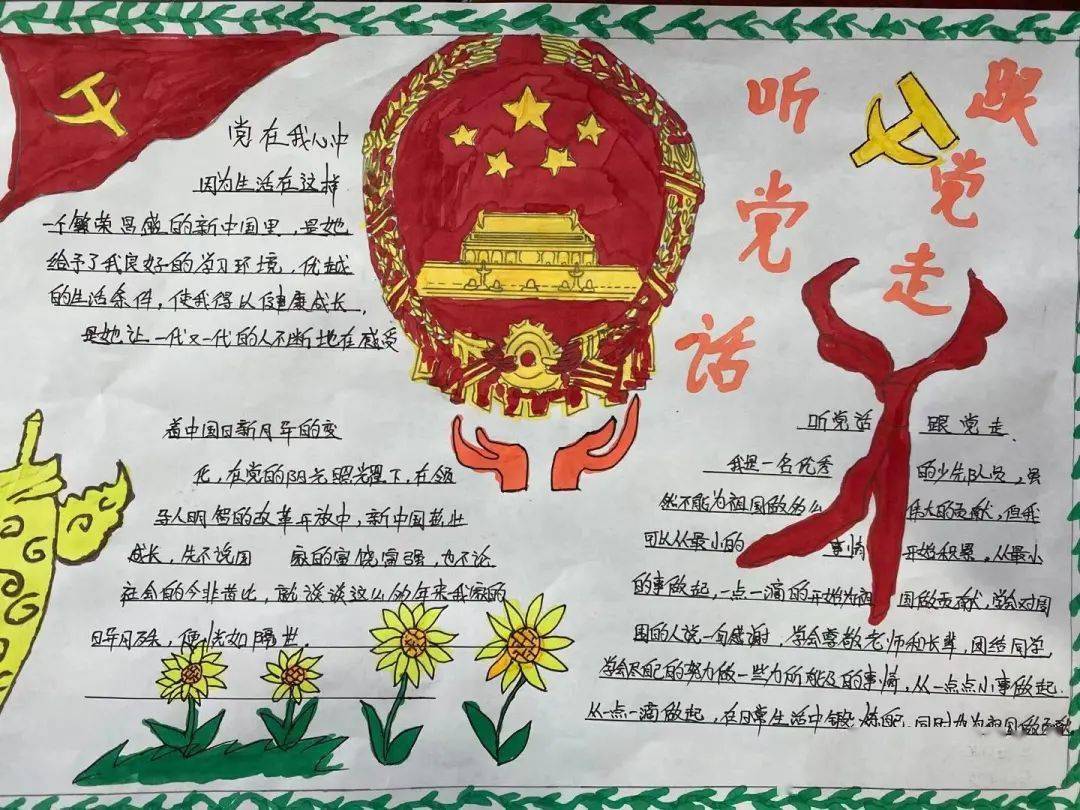 听党话
跟党走
党在我心中
因为生活在这样
一个繁荣昌盛的新中国里，是她
给予了我良好的学习环境，优越
的生活条件，使我得以健康成长，
是她让一代又一代的人不断地在感受
着中国日新月异的变
化，在党的阳光照耀下，在领
导人明智的改革开放中，新中国茁壮
成长，先不说国 家的富饶富强，也不论
社会的今非昔比，就谈谈这么多年来我家的
日异月殊，便恍如隔世．
听党话 跟党走．
我是一名优秀 的少先队员，虽
然不能为祖国做多么 伟大的贡献，但我
可以从最小的 事情 开始积累，从最小
的事做起，一点一滴的开始为祖 国做贡献，学会对周
围的人说一句感谢，学会尊敬老师和长辈，团结同学，
学会尽己的努力做一些力所能及的事情，从一点点小事做起．
从一点一滴做起，在日常生活中锻炼